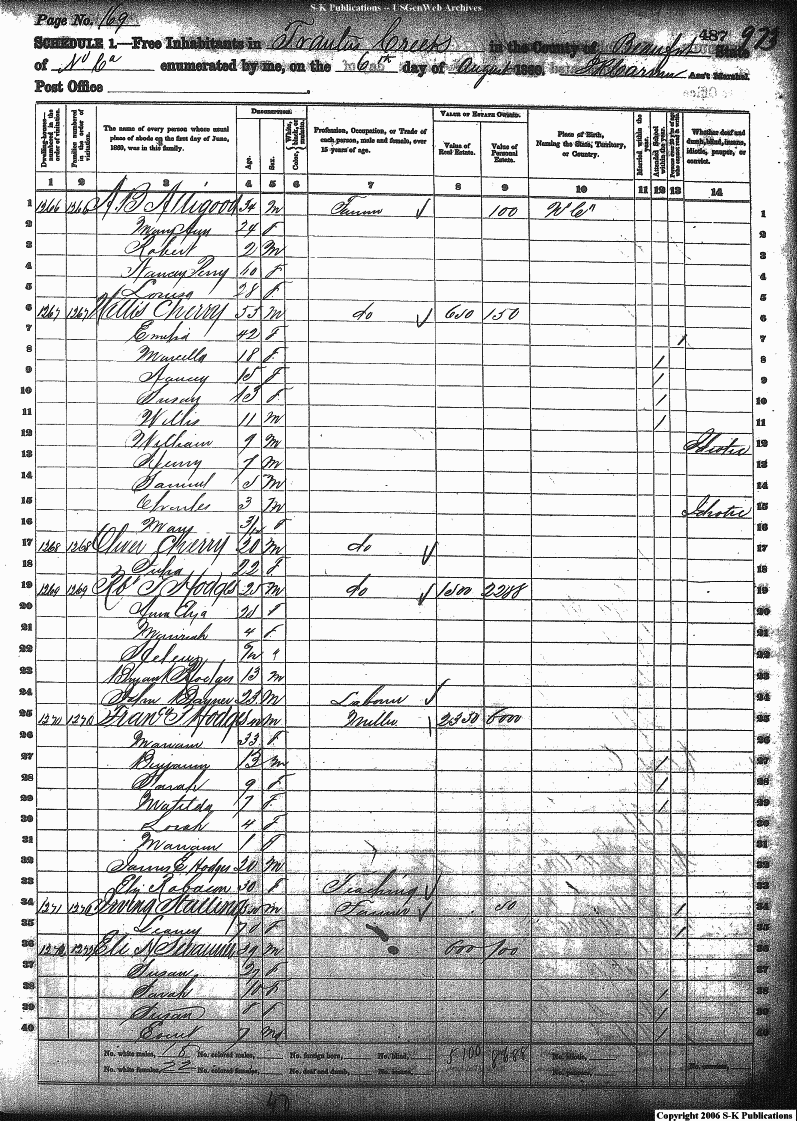 S-K Publications -- USGenWeb Archives
Page No. 169
487 973
SCHEDULE 1.—Free Inhabitants in Trantus Creek in the County of Beaufort State
of No Ca enumerated by me, on the 6th day of August 1860. Ass't Marshal.
Post Office
Dwelling-houses numbered in the order of visitation.
Families numbered in the order of visitation.
The name of every person whose usual place of abode on the first day of June, 1860, was in this family.
DESCRIPTION.
Age.
Sex.
Color, White, black, or mulatto.
Profession, Occupation, or Trade of each person, male and female, over 15 years of age.
VALUE OF ESTATE OWNED.
Value of Real Estate.
Value of Personal Estate.
Place of Birth, Naming the State, Territory, or Country.
Married within the year.
Attended School within the year.
Whether deaf and dumb, blind, insane, idiotic, pauper, or convict.
1 2 3 4 5 6 7 8 9 10 11 12 13 14
1 1266 1266 A B Alligood 34 M Farmer 100 N Ca 1
2 Mary Ann 24 F 2
3 Robert 2 M 3
4 Nancy Perry 40 F 4
5 Louisa 28 F 5
6 1267 1267 Willis Cherry 55 M do 650 150 6
7 Emelia 42 F / 7
8 Marcella 18 F / 8
9 Nancy 15 F / 9
10 Susan 13 F / 10
11 Willis 11 M / 11
12 William 9 M Idiotic 12
13 Henry 7 M 13
14 Samuel 5 M 14
15 Charles 3 M Idiotic 15
16 Mary 3/12 F 16
17 1268 1268 Oliver Cherry 20 M do 17
18 Julia 22 F 18
19 1269 1269 Ro T Hodges 25 M do 1500 2288 19
20 Ann Eliza 21 F 20
21 4 F 21
22 22
23 Bryant Hodges 13 M 23
24 John 23 M Labour 24
25 1270 1270 Franc T Hodges M Miller 2350 6000 25
26 33 F 26
27 Benjamin 13 M / 27
28 Sarah 9 F / 28
29 Matilda 7 F / 29
30 4 F 30
31 1 F 31
32 James E Hodges 20 M 32
33 Eliz Robason 30 F Teaching 33
34 1271 1271 Irving Stallings M Farmer 50 / 34
35 70 F / 35
36 1272 1272 Eli 39 M 600 100 36
37 Susan 37 F 37
38 Sarah 10 F / 38
39 Susan 8 F / 39
40 7 M / 40
No. white males, 18 No. colored males, No. foreign born, No. blind, 5100 8688 No. idiotic,
No. white females, 22 No. colored females, No. deaf and dumb, No. insane, No. paupers, No. convicts,
40
Copyright 2006 S-K Publications